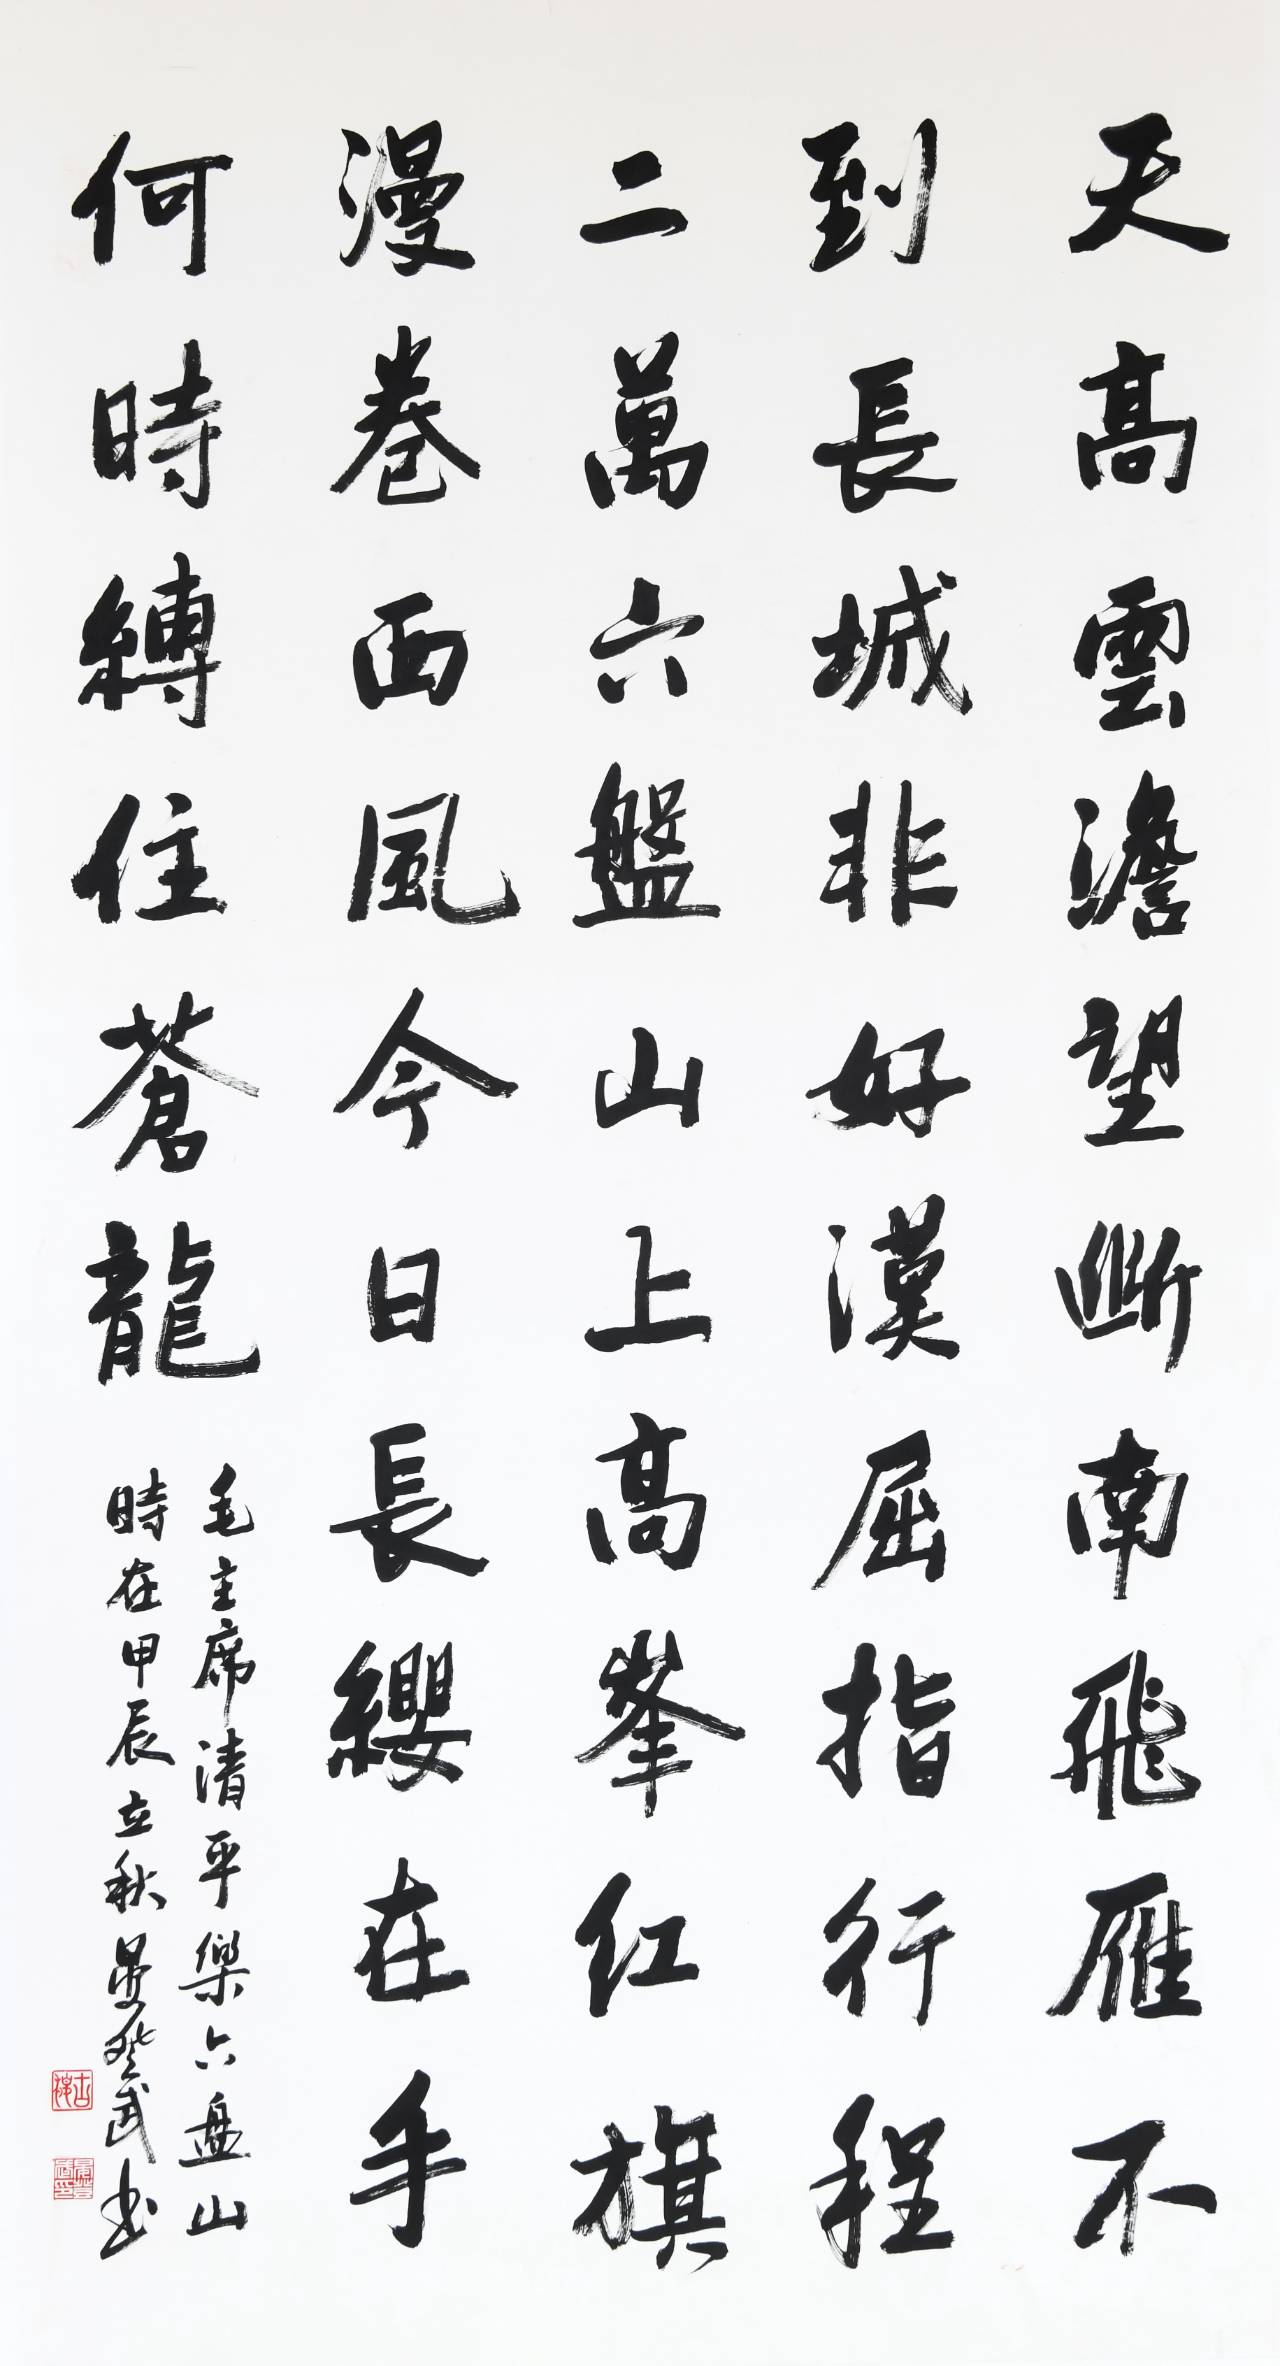 天高雲澹望斷南飛雁不
到長城非好漢屈指行程
二萬六盤山上高峯红旗
漫卷西風今日長纓在手
何時縛住蒼龍
毛主席清平樂六盘山
時在甲辰立秋景登武书